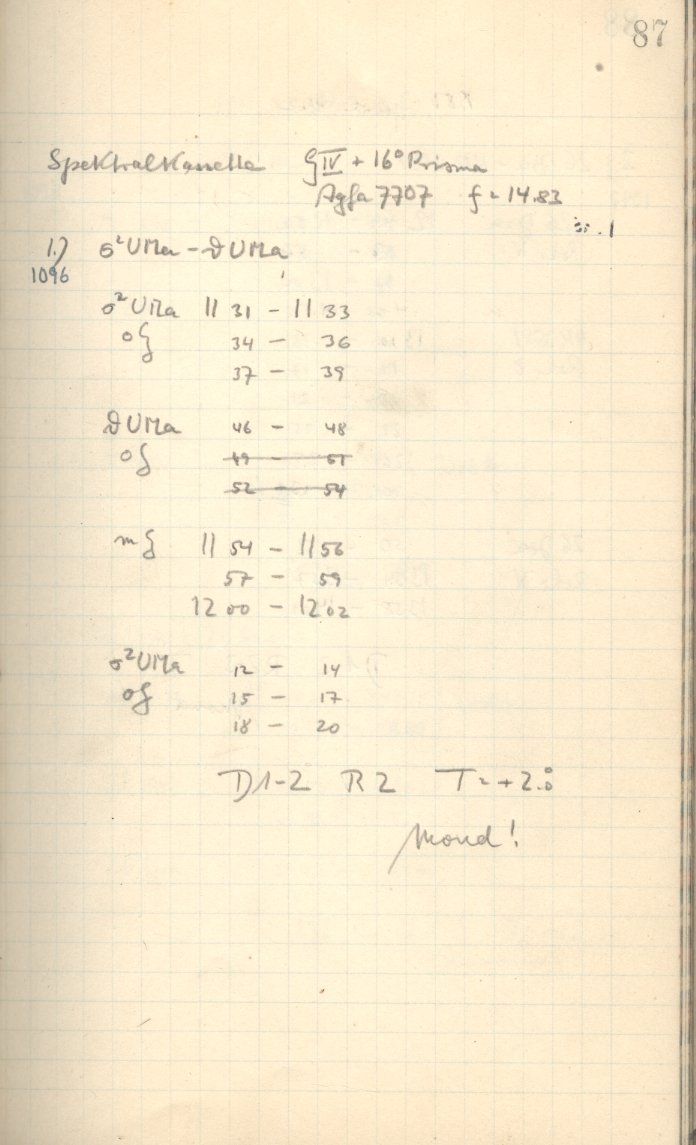 87
Spektralkassette GIV + 16° Prisma
Agfa 7707 f = 14.83
1.) σ²UMa - ϑUMa
1096
σ²UMa 11 31 - 11 33
of 34 - 36
37 - 39
ϑUMa 46 - 48
of 49 - 51
52 - 54
mf 11 54 - 11 56
57 - 59
12 00 - 12 02
σ²UMa 12 - 14
of 15 - 17
18 - 20
D1-2 R2 T = +2.°0
Mond!